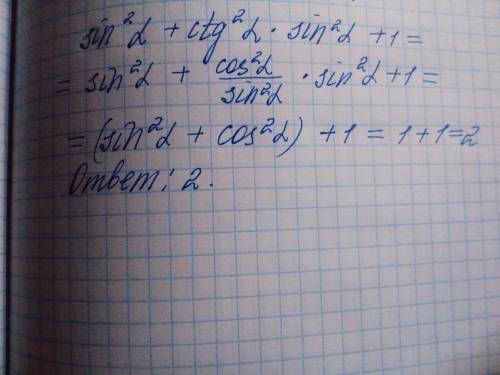 sin²α + ctg²α · sin²α + 1 =
= sin²α + cos²α/sin²α · sin²α + 1 =
= (sin²α + cos²α) + 1 = 1 + 1 = 2
Ответ: 2.